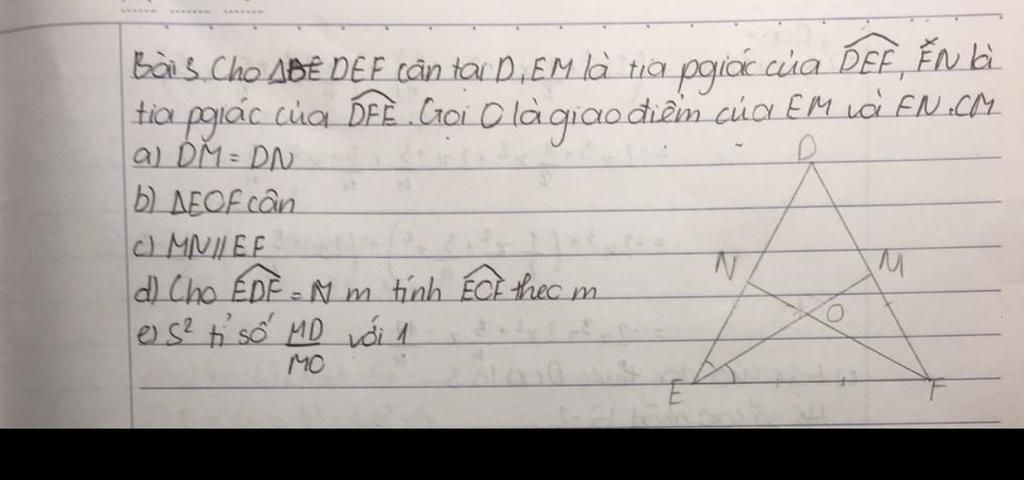 Bài 3. Cho DEF cân tại D, EM là tia pgiác của DEF, FN là
tia pgiác của DFE. Gọi O là giao điểm của EM và FN. CM
a) DM = DN
b) ΔEOF cân
c) MN // EF
d) Cho EDF = m tính EOF theo m
e) S² tỉ số MD/MO với 1
D
N
M
O
E
F